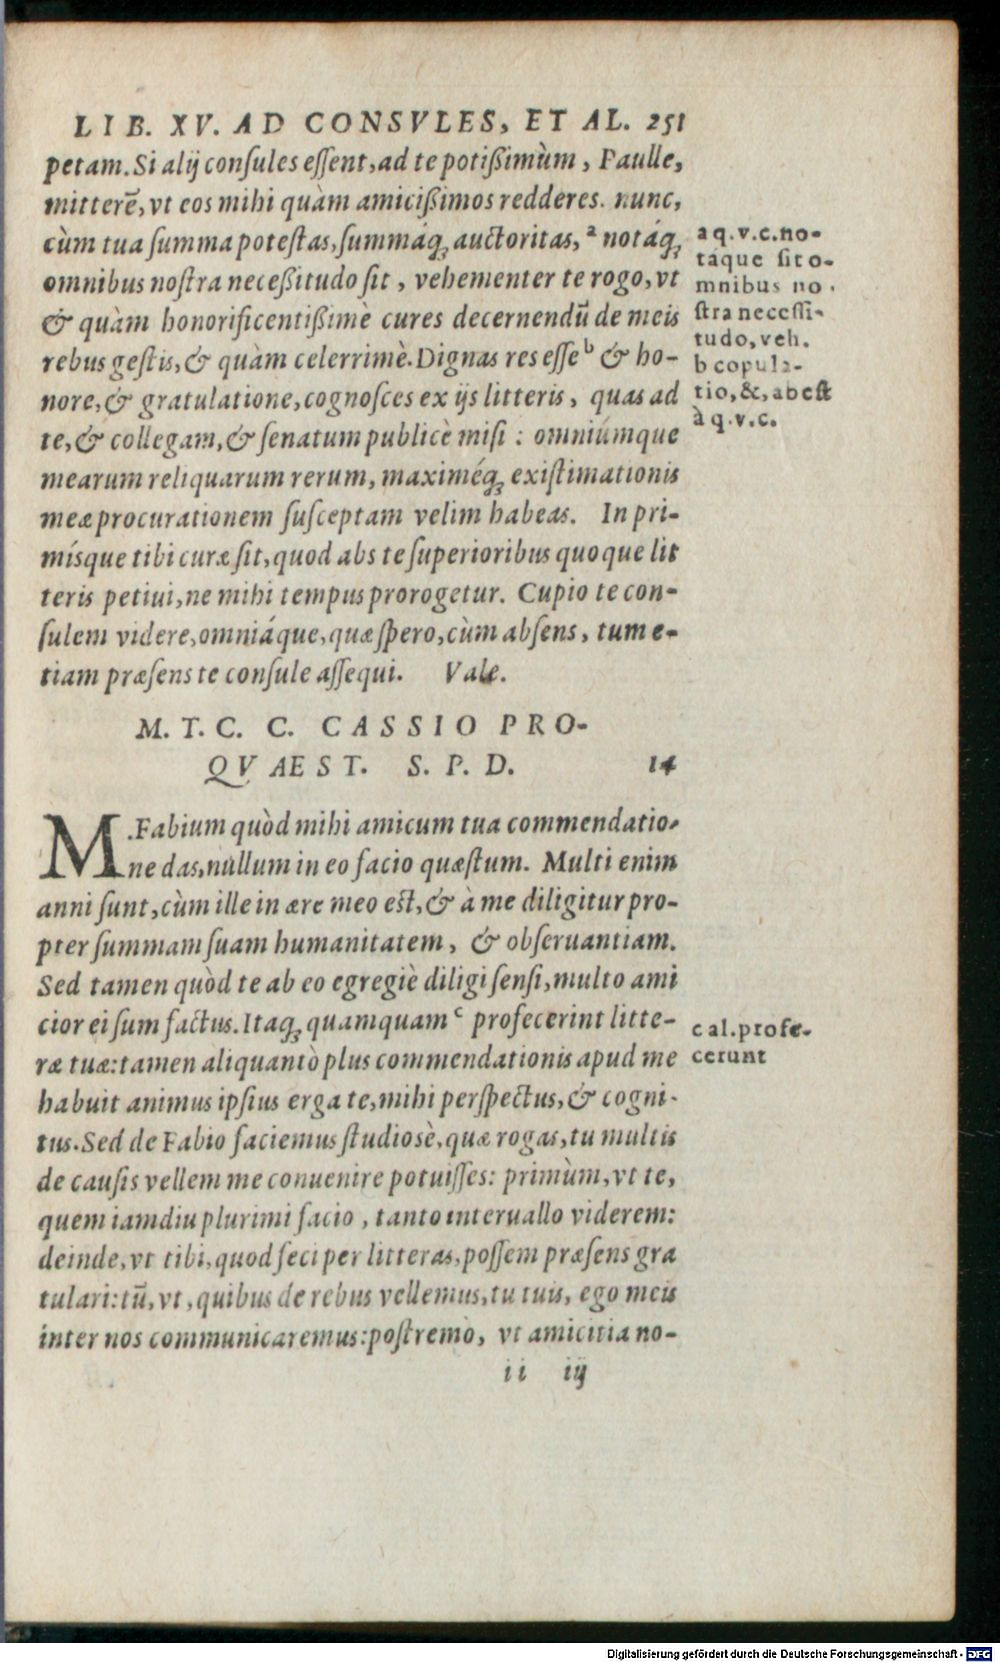 LIB. XV. AD CONSVLES, ET AL. 251
petam. Si alij consules essent, ad te potißimùm, Paulle,
mitterē, vt eos mihi quàm amicißimos redderes. nunc,
cùm tua summa potestas, summáq; auctoritas, ᵃ notáq;
omnibus nostra neceßitudo sit, vehementer te rogo, vt
& quàm honorificentißimè cures decernendū de meis
rebus gestis, & quàm celerrimè. Dignas res esse ᵇ & ho-
nore, & gratulatione, cognosces ex ijs litteris, quas ad
te, & collegam, & senatum publicè misi: omniúmque
mearum reliquarum rerum, maximéq; existimationis
meæ procurationem susceptam velim habeas. In pri-
mísque tibi curæ sit, quod abs te superioribus quoque lit
teris petiui, ne mihi tempus prorogetur. Cupio te con-
sulem videre, omniáque, quæ spero, cùm absens, tum e-
tiam præsens te consule assequi. Vale.
a q.v.c.no-
táque sit o-
mnibus no-
stra necessi-
tudo, veh.
b copula-
tio, &, abest
à q.v.c.
M. T. C. C. CASSIO PRO-
QVAEST. S. P. D. 14
M.Fabium quòd mihi amicum tua commendatio-
ne das, nullum in eo facio quæstum. Multi enim
anni sunt, cùm ille in ære meo est, & à me diligitur pro-
pter summam suam humanitatem, & obseruantiam.
Sed tamen quòd te ab eo egregiè diligi sensi, multo ami
cior ei sum factus. Itaq; quamquam ᶜ profecerint litte-
ræ tuæ: tamen aliquantò plus commendationis apud me
habuit animus ipsius erga te, mihi perspectus, & cogni-
tus. Sed de Fabio faciemus studiosè, quæ rogas, tu multis
de causis vellem me conuenire potuisses: primùm, vt te,
quem iamdiu plurimi facio, tanto interuallo viderem:
deinde, vt tibi, quod feci per litteras, possem præsens gra
tulari: tū, vt, quibus de rebus vellemus, tu tuis, ego meis
inter nos communicaremus: postremò, vt amicitia no-
c al. profe-
cerunt
ii iij
Digitalisierung gefördert durch die Deutsche Forschungsgemeinschaft - DFG